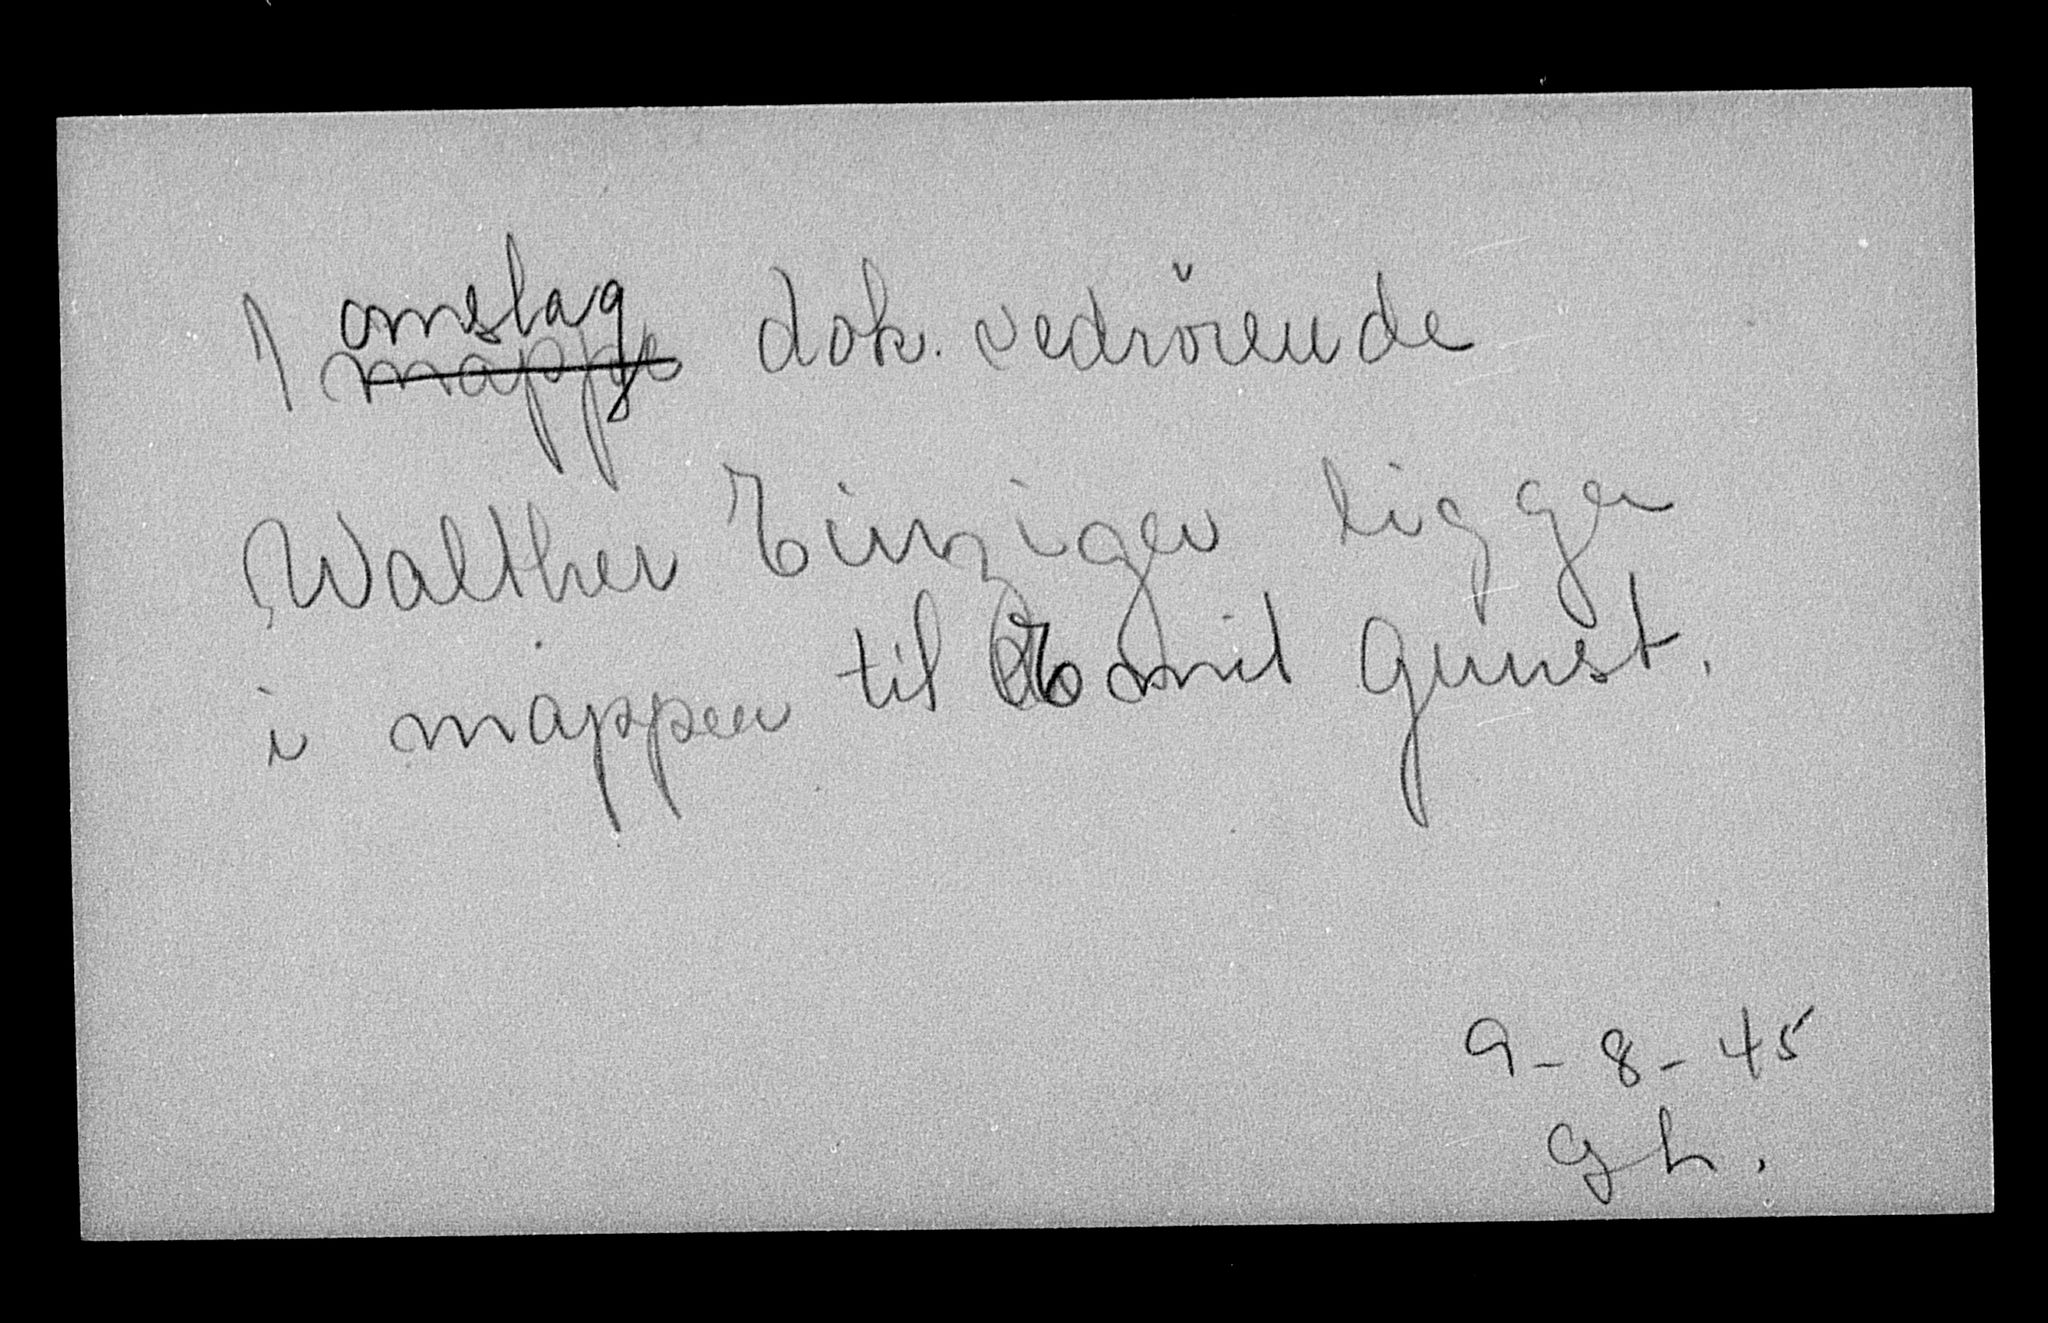 1 omslag dok. vedrörende
mappe
Walther Einziger ligger
i mappen til Emil Gunst.
9-8-45
GH.